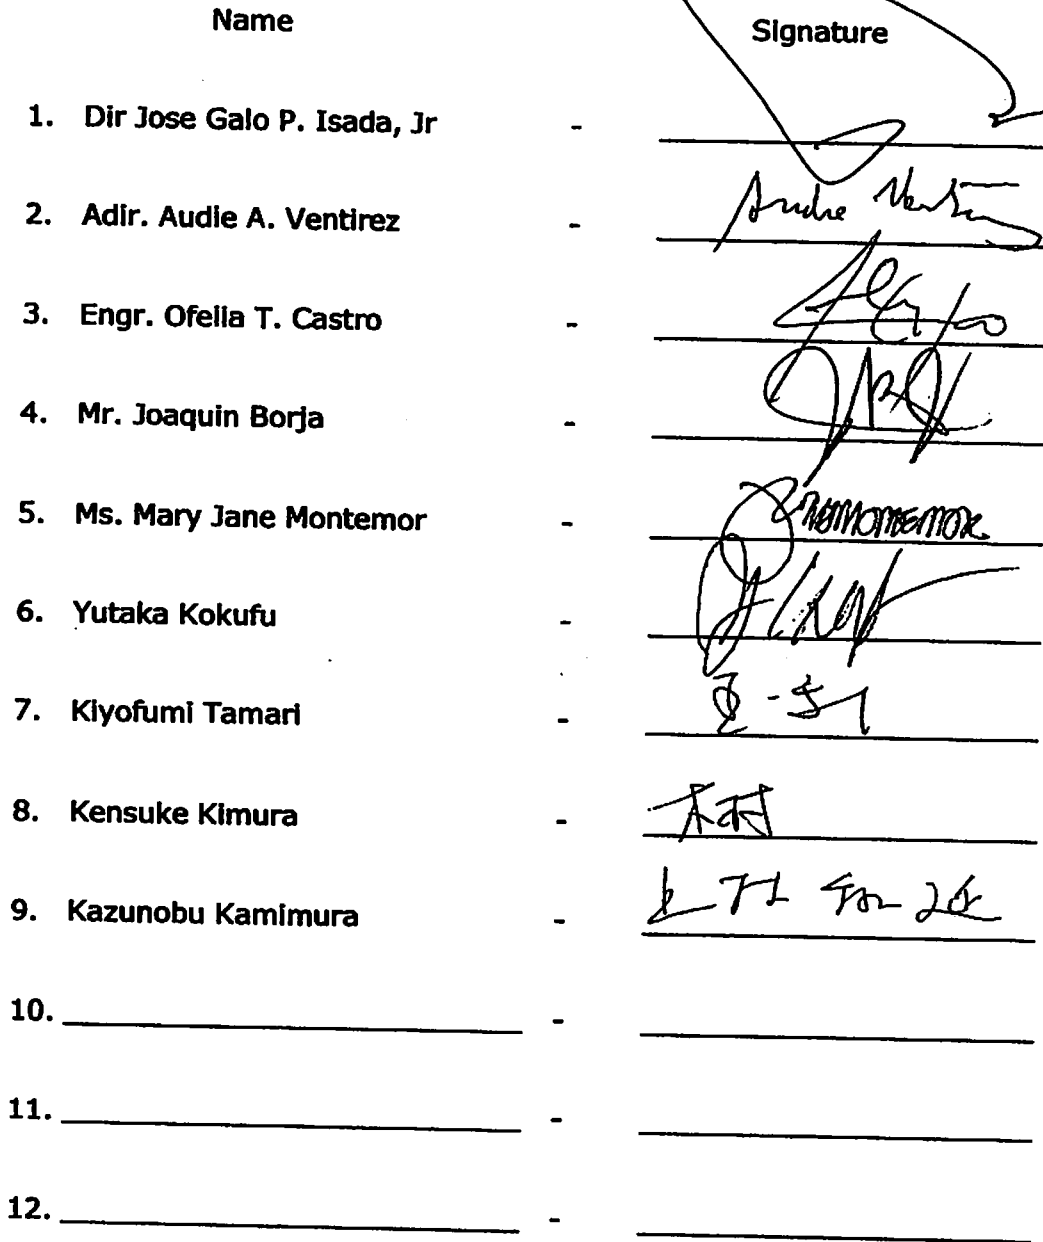 Name Signature
1. Dir Jose Galo P. Isada, Jr -
2. Adir. Audie A. Ventirez - Audie
3. Engr. Ofelia T. Castro -
4. Mr. Joaquin Borja -
5. Ms. Mary Jane Montemor -
6. Yutaka Kokufu -
7. Kiyofumi Tamari -
8. Kensuke Kimura - 木村
9. Kazunobu Kamimura - 上村
10. -
11. -
12. -